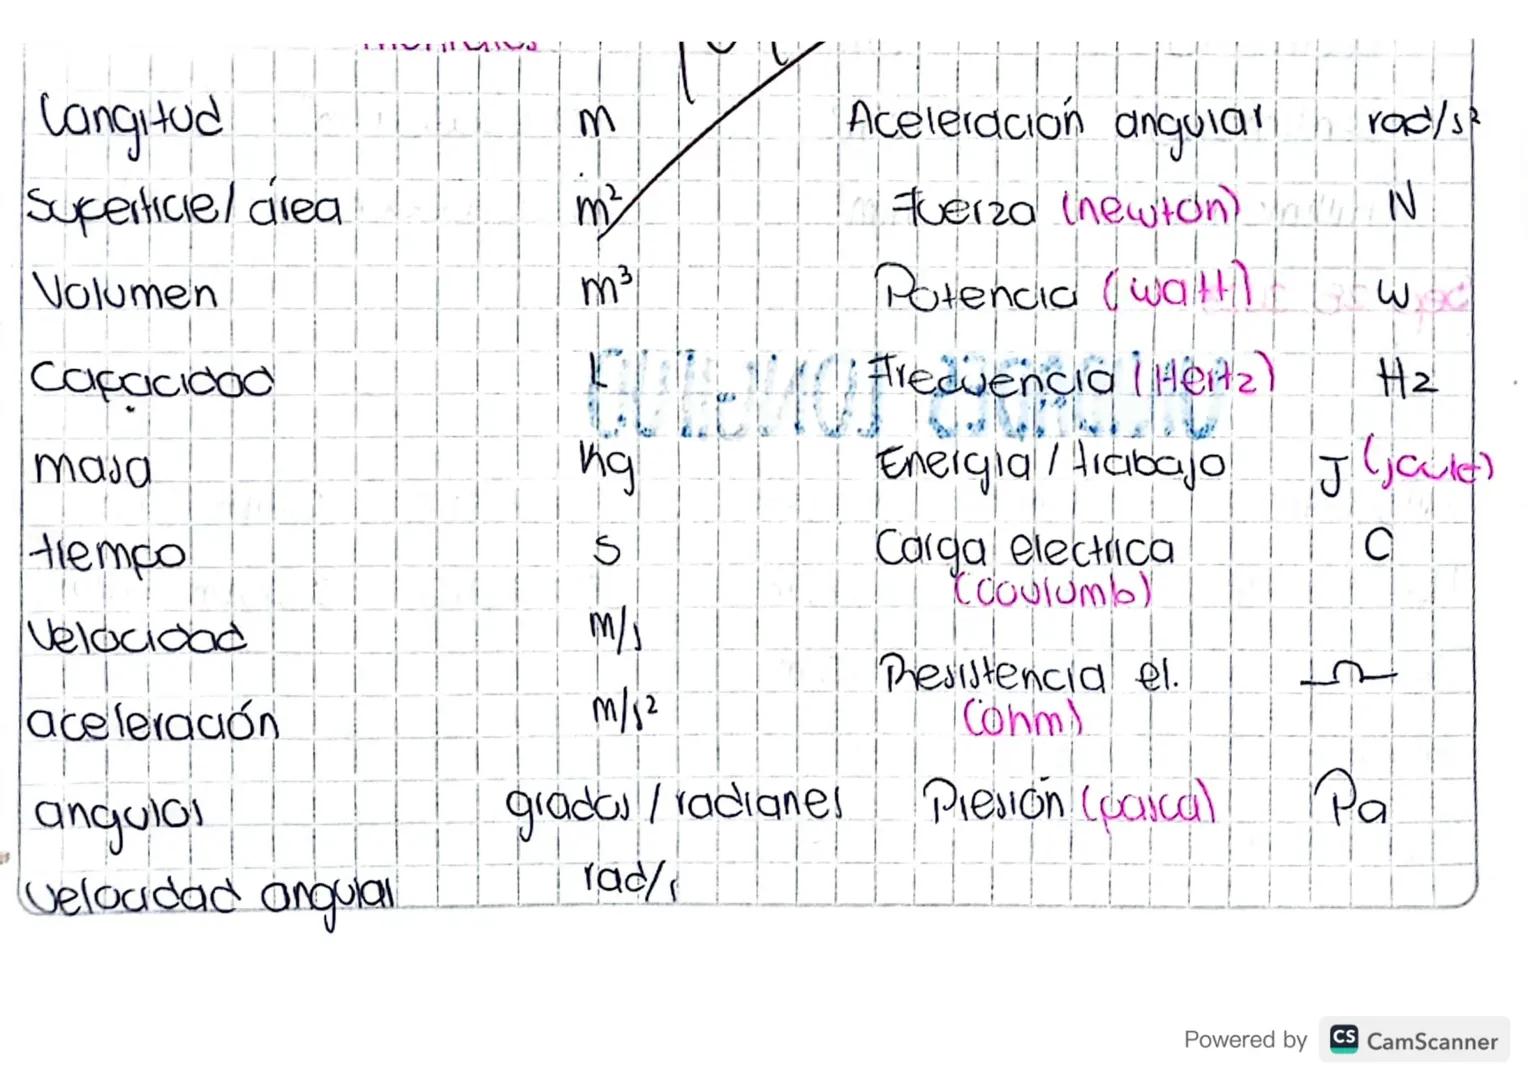 Longitud m
Superficie/ área m²
Volumen m³
Capacidad L
masa kg
tiempo s
Velocidad m/s
aceleración m/s²
angulos grados / radianes
velocidad angular rad/s
Aceleración angular rad/s²
Fuerza (newton) N
Potencia (watt) W
Frecuencia (Hertz) Hz
Energia / trabajo J (joule)
Carga electrica C
(coulumb)
Resistencia el. Ω
(ohm)
Presión (pascal) Pa
Powered by CS CamScanner